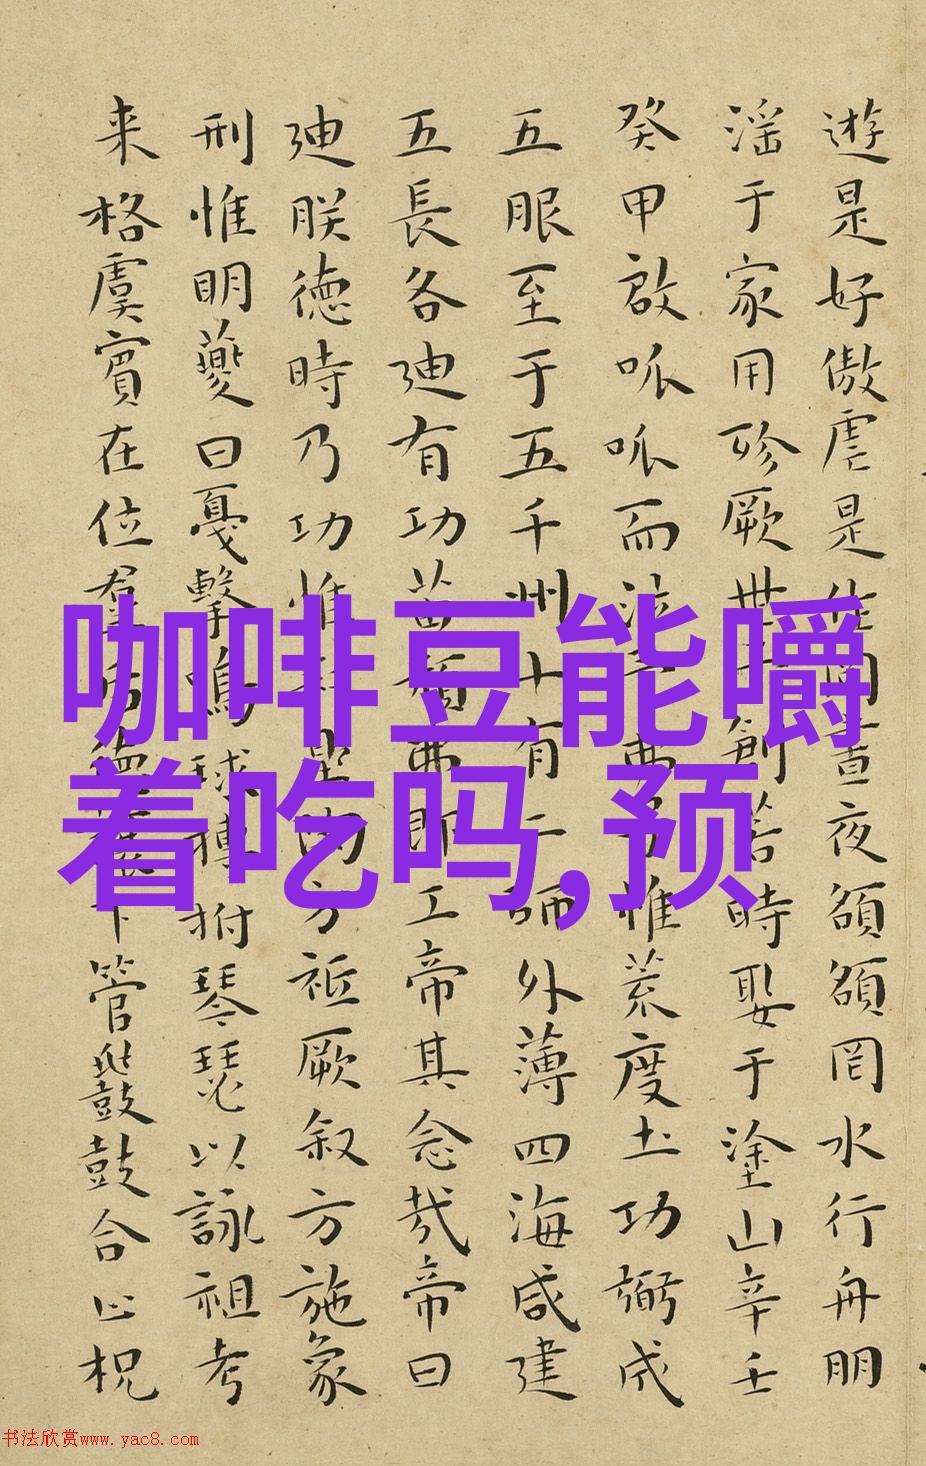 遊是好傲虐是作罔晝夜頟頟罔水行舟朋
淫于家用殄厥世予創若時娶于塗山辛壬
癸甲啟呱呱而泣予弗子惟荒度土功弼成
五服至于五千州十有二師外薄四海咸建
五長各迪有功苗頑弗即工帝其念哉帝曰
迪朕德時乃功惟方祗厥叙方施象
刑惟明夔曰戛擊鳴球搏拊琴瑟以詠祖考
来格虞賓在位羣后德讓下管鼗鼓合止柷
咖啡豆能嚼
着吃吗,预
书法欣赏www.yac8.com